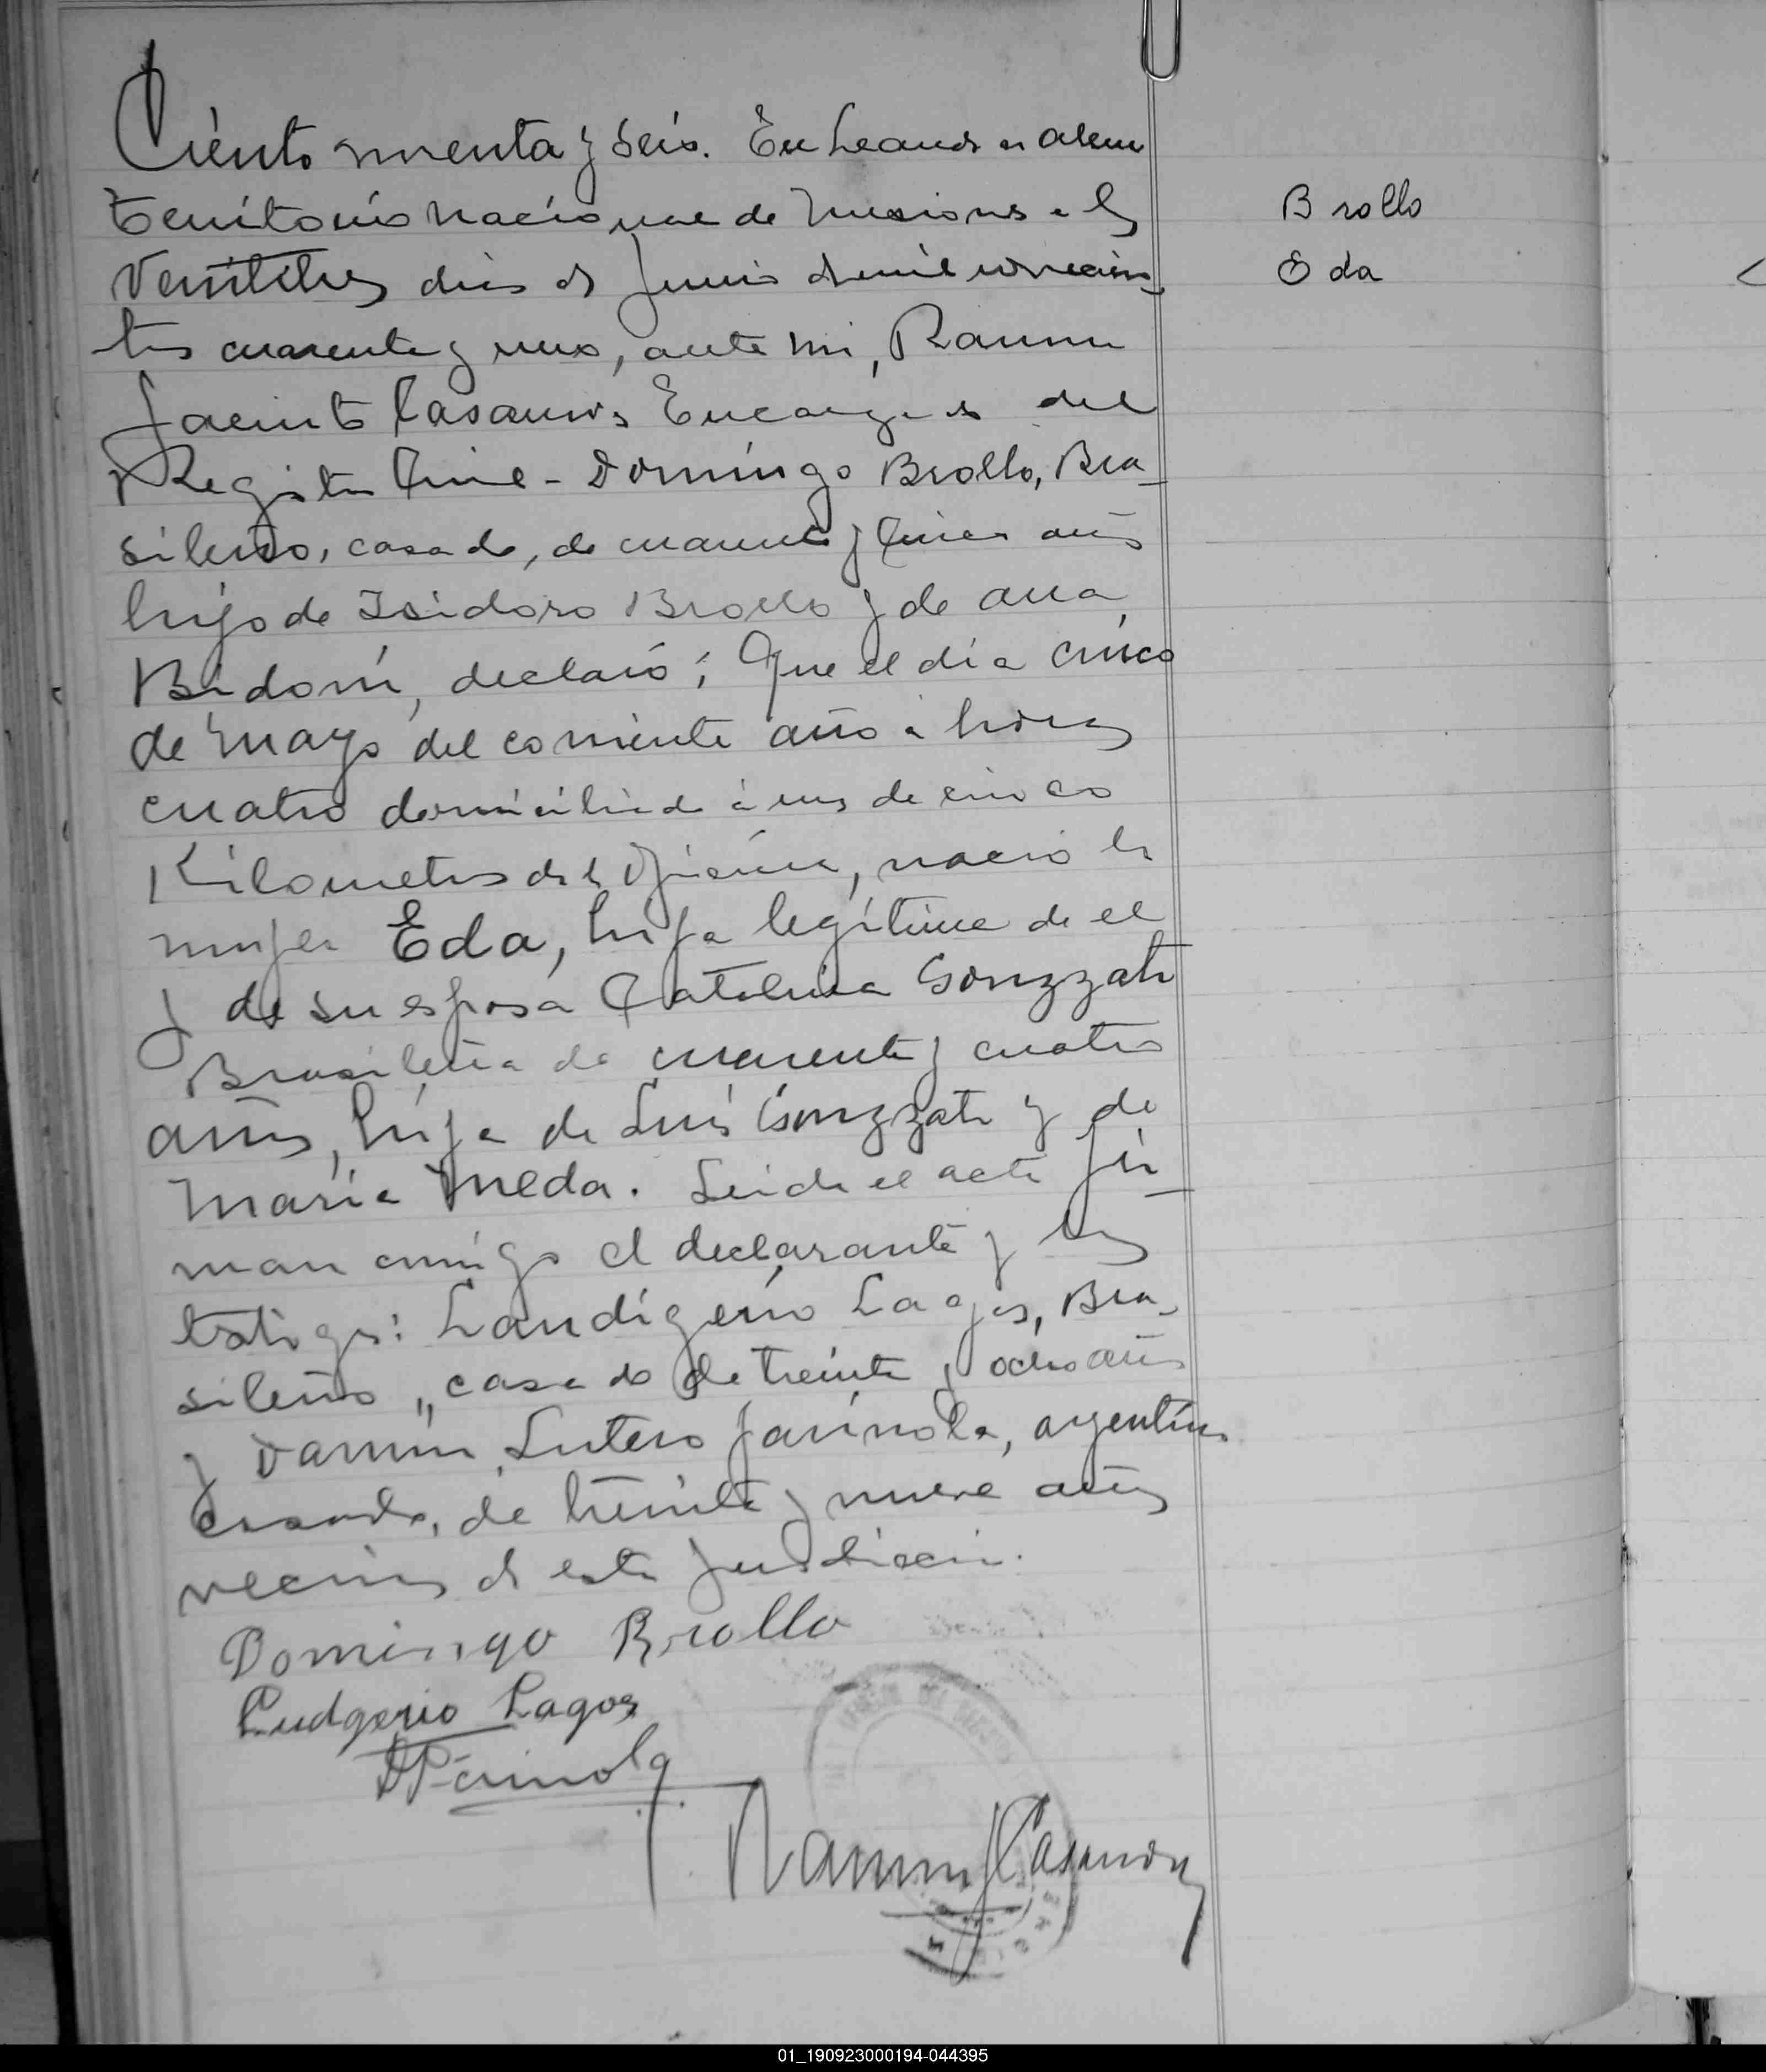 Ciento noventa y seis. En Leandro n Alem
Territorio nacional de Misiones a los
Veintitres dias de Junio de mil novecien-
tos cuarenta y uno, ante mi, Ramon
Jacinto Casanova Encargado del
Registro Civil - Domingo Brollo, Bra-
sileño, casado, de cuarenta y cinco años
hijo de Isidoro Brollo y de Ana
declaró; Que el día cinco
de Mayo del corriente año a horas
cuatro domiciliado a unos de cinco
Kilometros de la Oficina, nacio la
mujer Eda, hija legítima de el
y de su esposa Catalina Gonzzato
Brasileña de cuarenta y cuatro
años, hija de Luis Gonzzato y de
María Meda. Leida el acta fir-
man conmigo el declarante y los
testigos: Laudigerio Lagos, Bra-
sileño, casado de treinta y ocho años
y Darwin Lutero Farinola, argentino
casado, de treinta y nueve años
vecinos de esta Jurisdiccion.
Domingo Brollo
Ludgerio Lagos
Farinola
Ramon J Casanova
Brollo
Eda
01_190923000194-044395